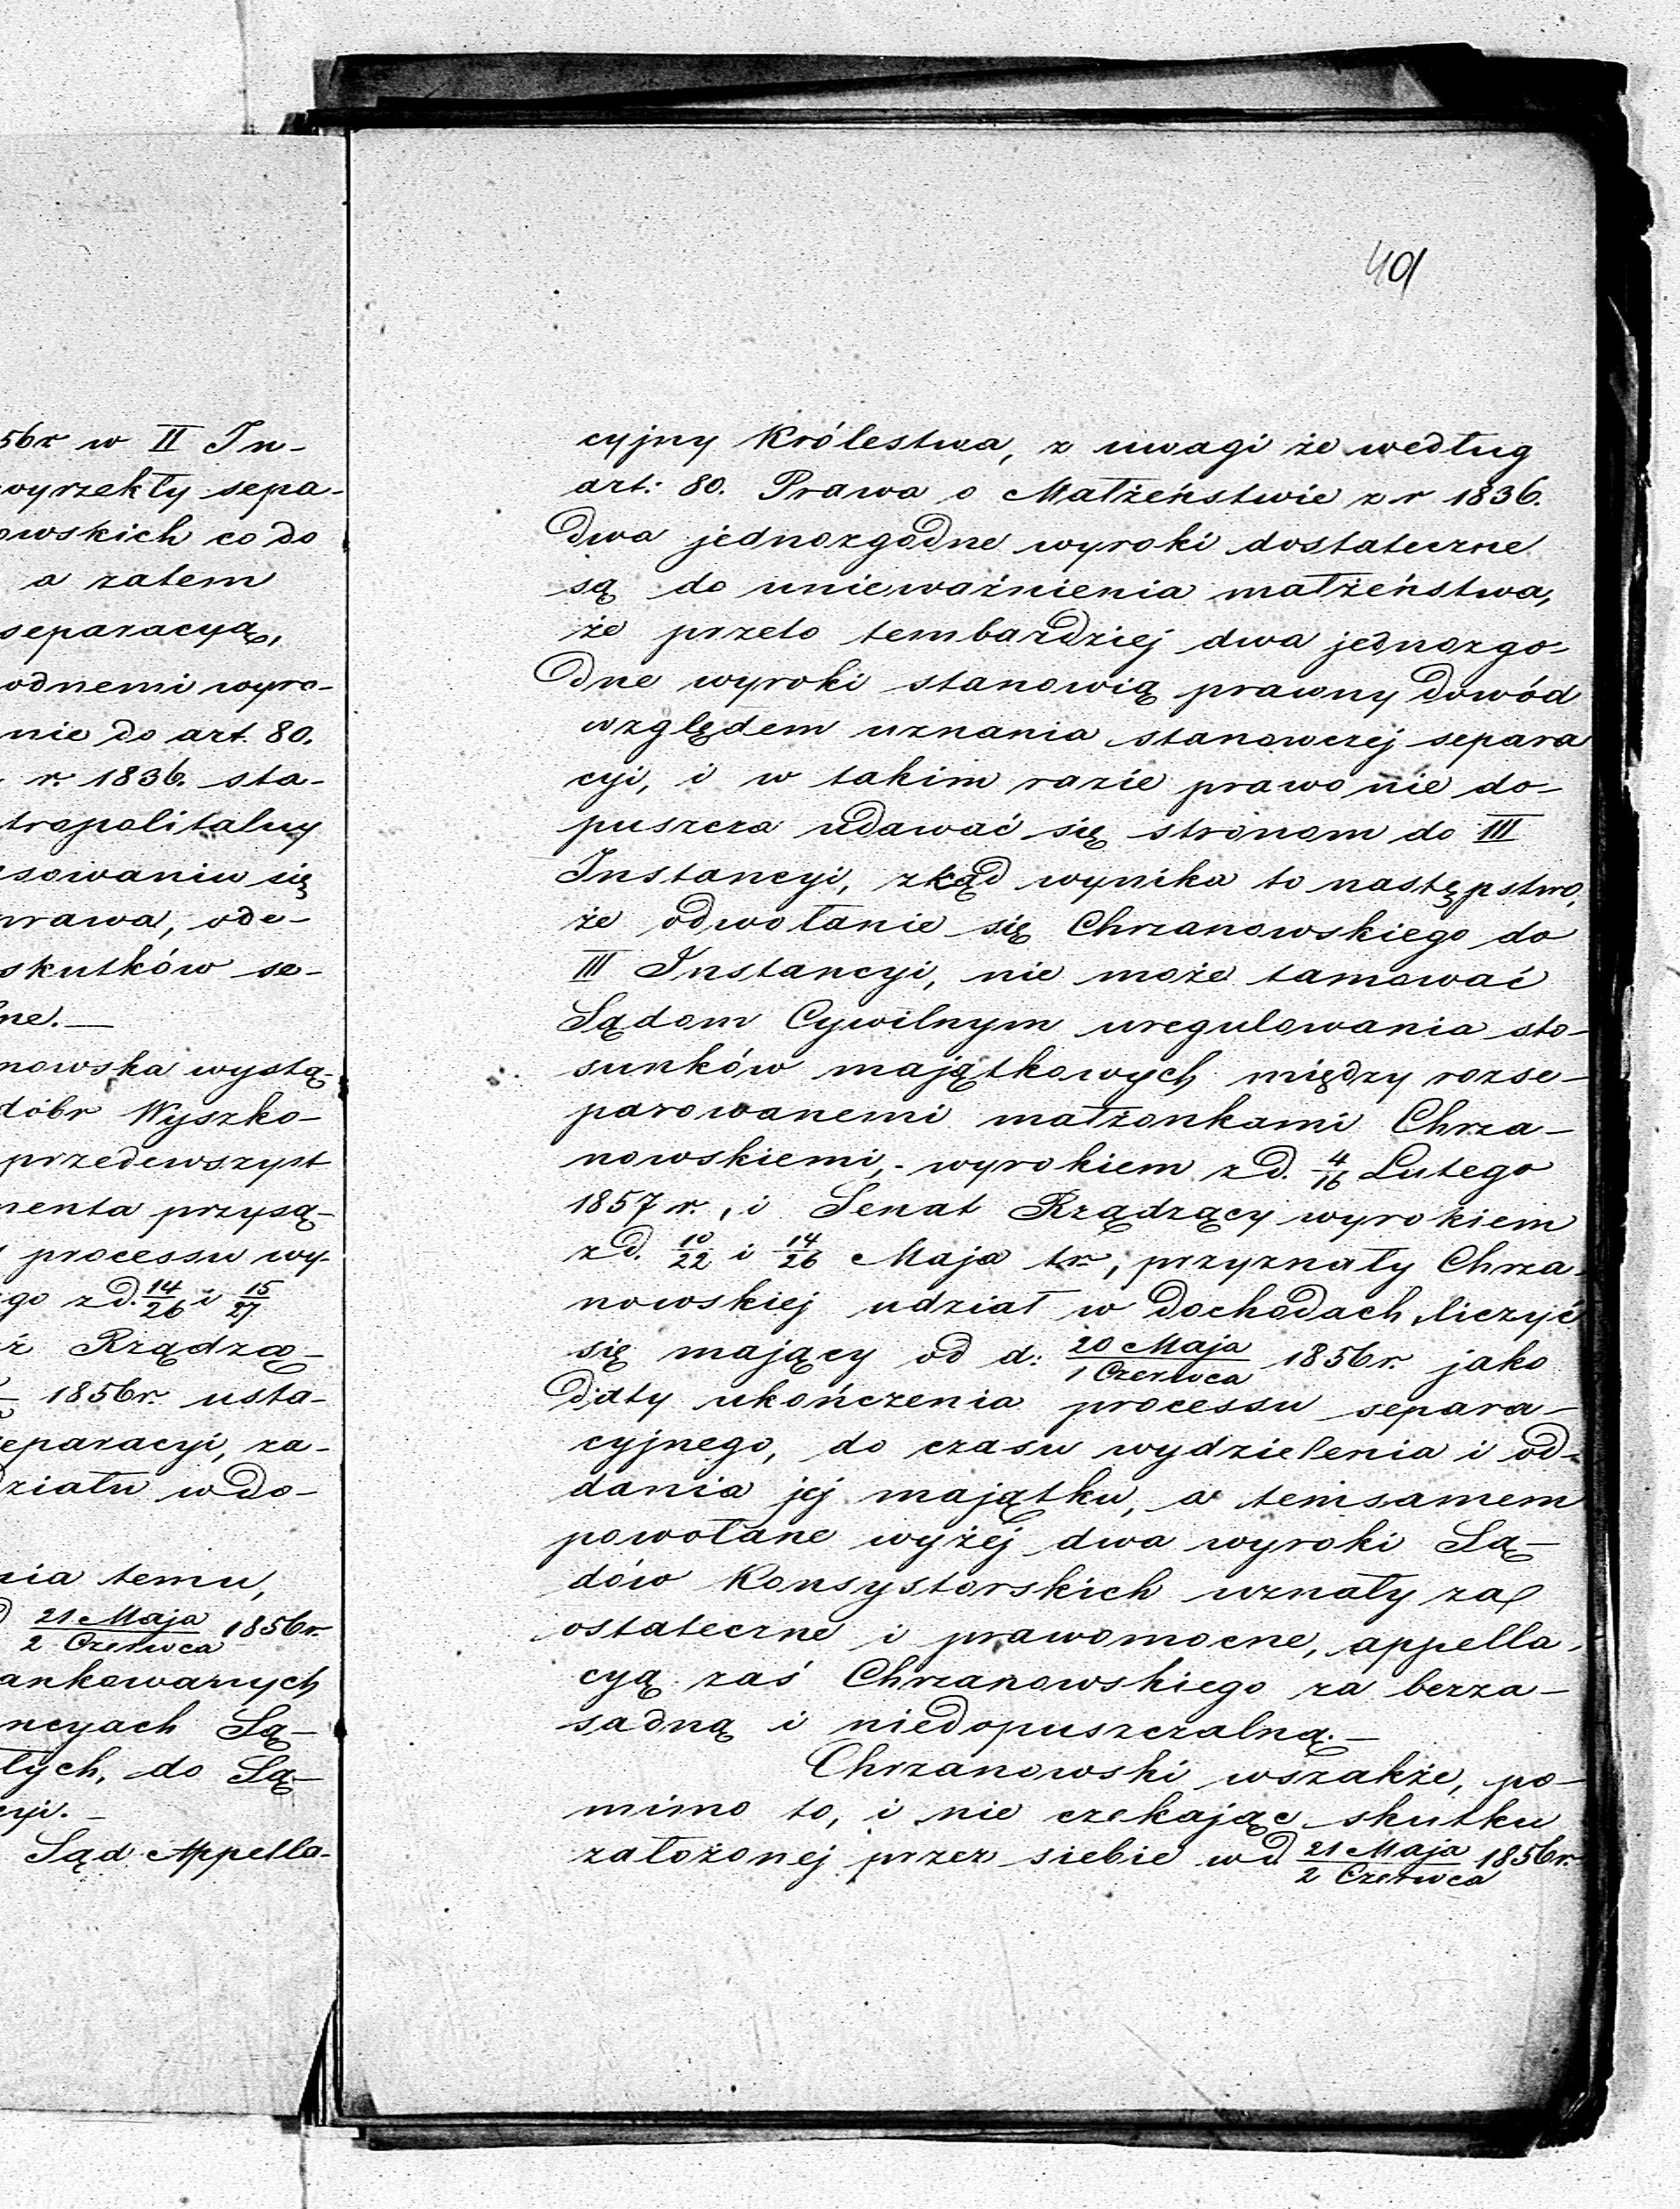 56r w II In-
wyrzekły sepa-
owskich co do
a zatem
separacyą,
odnemi wyro-
nie do art. 80.
r. 1836. sta-
tropolitalny
sowaniu się
prawa, ode-
skutków se-
ne.—
nowska wystą-
dóbr Wyszko-
przedewszyst
menta przysą-
processu wy-
go z d. 14/26 i 15/27
ż Rządzą-
1856r. usta-
eparacyi, za-
działu w do-
nia temu,
21 Maja/2 Czerwca 1856r.
ankowanych
ncyach Są-
łych, do Są-
cyi.—
Sąd Appella-
401
cyjny Królestwa, z uwagi że według
art: 80. Prawa o Małżeństwie z r 1836.
dwa jednozgodne wyroki dostateczne
są do unieważnienia małżeństwa,
że przeto tembardziej dwa jednozgo-
dne wyroki stanowią prawny dowód
względem uznania stanowczej separa
cyi, i w takim razie prawo nie do-
puszcza udawać się stronom do III
Instancyi, zkąd wynika to następstwo,
że odwołanie się Chrzanowskiego do
III Instancyi, nie może tamować
Sądom Cywilnym uregulowania sto-
sunków majątkowych między rozse-
parowanemi małżonkami Chrza-
nowskiemi,- wyrokiem z d. 4/16 Lutego
1857 r., i Senat Rządzący wyrokiem
z d. 10/22 i 14/26 Maja t.r., przyznały Chrza-
nowskiej udział w dochodach, liczyć
się mający od d: 20 Maja/1 Czerwca 1856r. jako
daty ukończenia processu separa-
cyjnego, do czasu wydzielenia i od-
dania jej majątku, a temsamem
powołane wyżej dwa wyroki Są-
dów Konsystorskich uznały za
ostateczne i prawomocne, appella-
cyą zaś Chrzanowskiego za bezza-
sadną i niedopuszczalną.—
Chrzanowski wszakże, po-
mimo to, i nie czekając skutku
założonej przez siebie w d. 21 Maja/2 Czerwca 1856r.